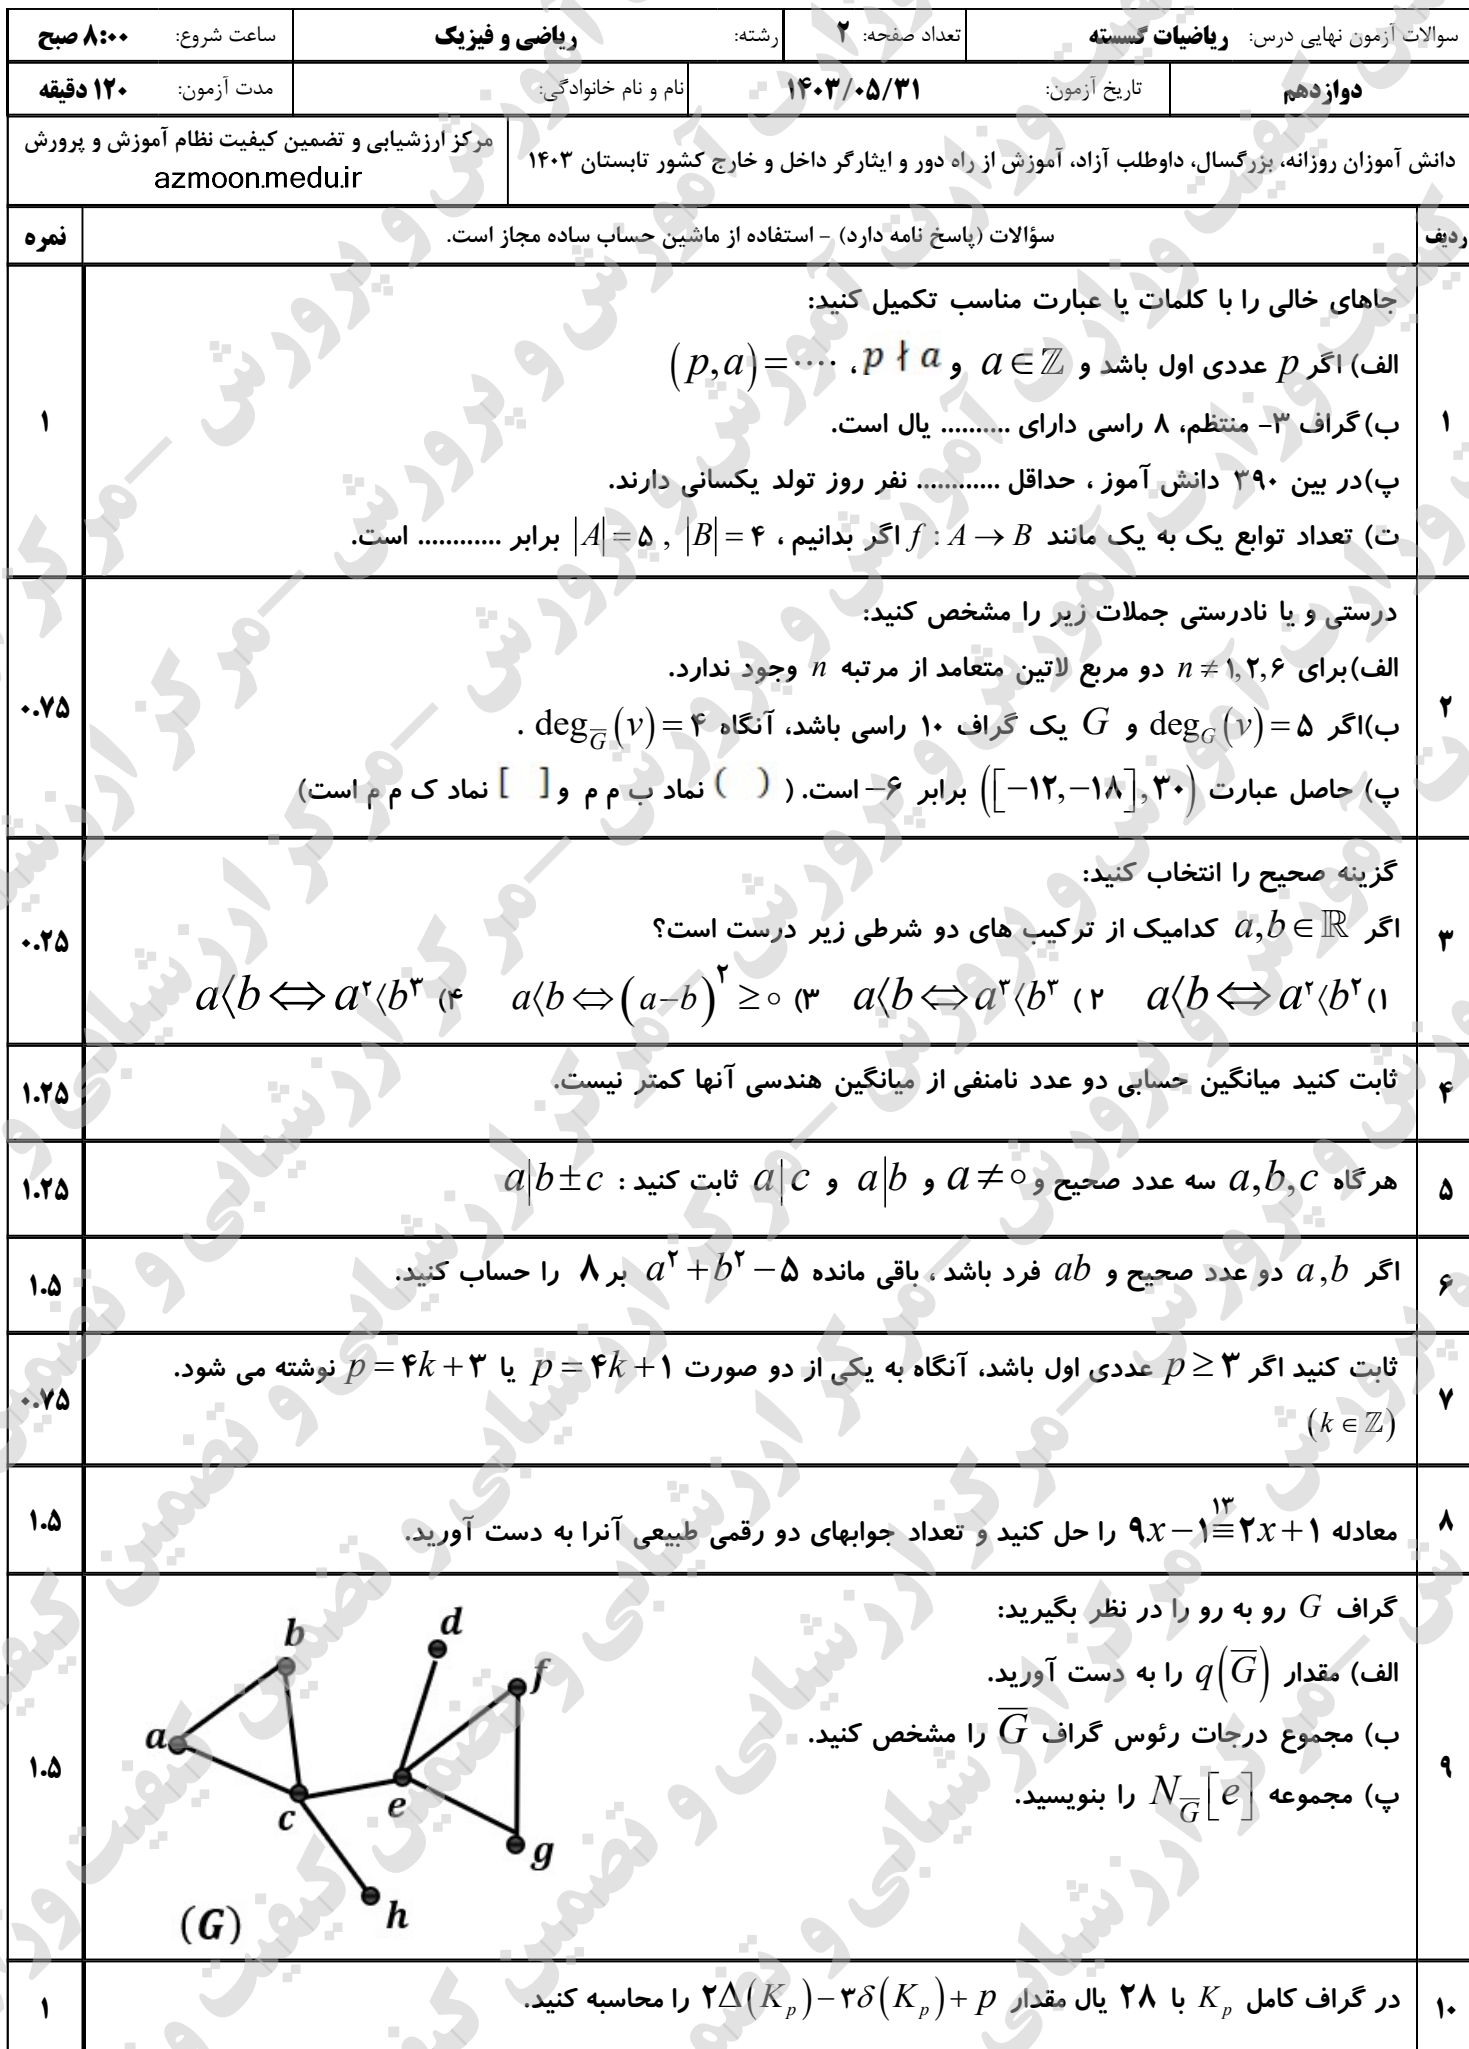 سوالات آزمون نهایی درس: ریاضیات گسسته تعداد صفحه: ۲ رشته: ریاضی و فیزیک ساعت شروع: ۸:۰۰ صبح
دوازدهم تاریخ آزمون: ۱۴۰۳/۰۵/۳۱ نام و نام خانوادگی: مدت آزمون: ۱۲۰ دقیقه
دانش آموزان روزانه، بزرگسال، داوطلب آزاد، آموزش از راه دور و ایثارگر داخل و خارج کشور تابستان ۱۴۰۳ مرکز ارزشیابی و تضمین کیفیت نظام آموزش و پرورش
azmoon.medu.ir
ردیف سؤالات (پاسخ نامه دارد) - استفاده از ماشین حساب ساده مجاز است. نمره
جاهای خالی را با کلمات یا عبارت مناسب تکمیل کنید:
الف) اگر p عددی اول باشد و a ∈ ℤ و p ∤ a ، (p,a) = ....
۱ ب) گراف ۳- منتظم، ۸ راسی دارای .......... یال است. ۱
پ)در بین ۳۹۰ دانش آموز ، حداقل ............ نفر روز تولد یکسانی دارند.
ت) تعداد توابع یک به یک مانند f : A → B اگر بدانیم ، |A| = ۵ , |B| = ۴ برابر ............ است.
درستی و یا نادرستی جملات زیر را مشخص کنید:
الف)برای n ≠ ۱,۲,۶ دو مربع لاتین متعامد از مرتبه n وجود ندارد.
۲ ب)اگر deg_G(v) = ۵ و G یک گراف ۱۰ راسی باشد، آنگاه deg_G̅(v) = ۴ . ۰.۷۵
پ) حاصل عبارت ([−۱۲,−۱۸],۳۰) برابر ۶− است. ( ( ) نماد ب م م و [ ] نماد ک م م است)
گزینه صحیح را انتخاب کنید:
۳ اگر a,b ∈ ℝ کدامیک از ترکیب های دو شرطی زیر درست است؟ ۰.۲۵
۱) a⟨b ⇔ a²⟨b² ۲) a⟨b ⇔ a³⟨b³ ۳) a⟨b ⇔ (a−b)² ≥ ۰ ۴) a⟨b ⇔ a²⟨b³
۴ ثابت کنید میانگین حسابی دو عدد نامنفی از میانگین هندسی آنها کمتر نیست. ۱.۲۵
۵ هر گاه a,b,c سه عدد صحیح و a ≠ ۰ و a|b و a|c ثابت کنید : a|b ± c ۱.۲۵
۶ اگر a,b دو عدد صحیح و ab فرد باشد ، باقی مانده a² + b² − ۵ بر ۸ را حساب کنید. ۱.۵
۷ ثابت کنید اگر p ≥ ۳ عددی اول باشد، آنگاه به یکی از دو صورت p = ۴k + ۱ یا p = ۴k + ۳ نوشته می شود. ۰.۷۵
(k ∈ ℤ)
۸ معادله ۹x − ۱ ≡^۱۳ ۲x + ۱ را حل کنید و تعداد جوابهای دو رقمی طبیعی آنرا به دست آورید. ۱.۵
گراف G رو به رو را در نظر بگیرید:
الف) مقدار q(G̅) را به دست آورید.
ب) مجموع درجات رئوس گراف G̅ را مشخص کنید.
۹ پ) مجموعه N_G̅[e] را بنویسید. ۱.۵
b d
f
a
c e
g
h
(G)
۱۰ در گراف کامل K_p با ۲۸ یال مقدار ۲Δ(K_p) − ۳δ(K_p) + p را محاسبه کنید. ۱